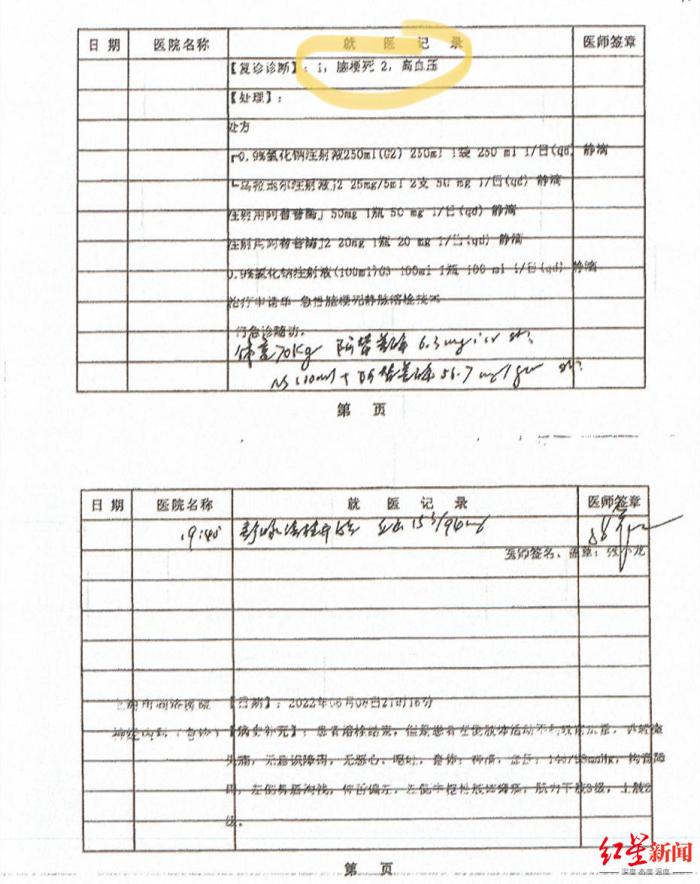 日 期 医院名称 就 医 记 录 医师签章
【复诊诊断】：1，脑梗死 2，高血压
【处理】：
处方
┌0.9%氯化钠注射液250ml(G2) 250ml 1袋 250 ml 1/日(qd) 静滴
└乌拉地尔注射液J2 25mg/5ml 2支 50 mg 1/日(qd) 静滴
注射用阿替普酶J 50mg 1瓶 50 mg 1/日(qd) 静滴
注射用阿替普酶J2 20mg 1瓶 20 mg 1/日(qd) 静滴
0.9%氯化钠注射液(100ml)G3 100ml 1瓶 100 ml 1/日(qd) 静滴
治疗申请单 急性脑梗死静脉溶栓技术
急诊随访.
体重70Kg 阿替普酶 6.3mg iv
NS 100ml + 阿替普酶 56.7mg
第 页
日 期 医院名称 就 医 记 录 医师签章
19:40 静脉溶栓开始
医师签名、盖章：
【日期】：2022年06月08日21时16分
神经内科（急诊） 【病史补充】：患者溶栓结束，
头痛，无意识障碍，无恶心、呕吐，查体：神清，血压：mmHg，构音障
碍，左侧鼻唇沟浅，伸舌偏左，左侧中枢性肢体瘫痪，肌力下肢3级，上肢2
级。
第 页
红星新闻
深度 态度 温度